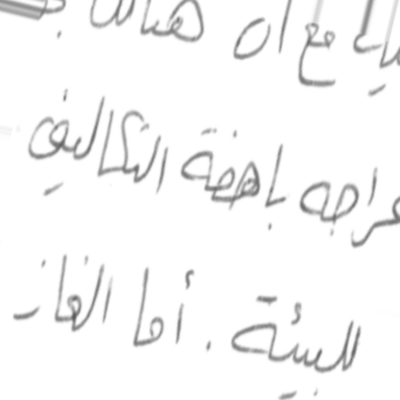 مع أن هنالك
باهضة التكاليف
للبيئة . أما الغاز